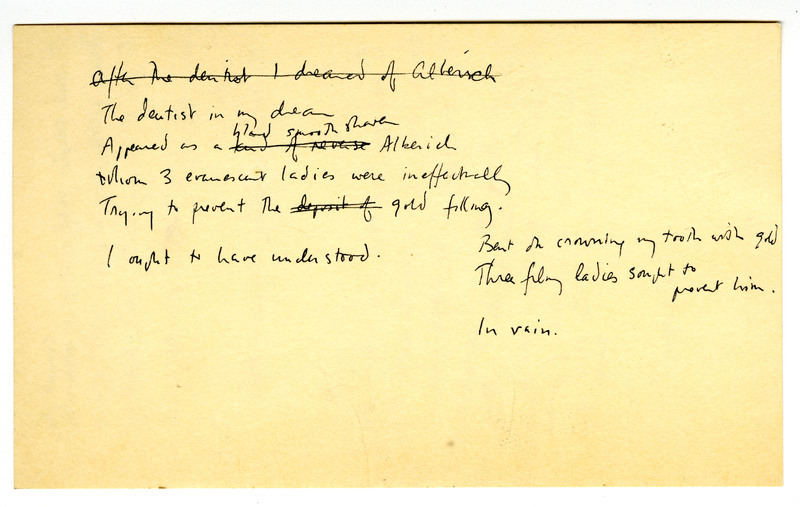 After the dentist I dreamed of Alberich
The dentist in my dream
bland smooth shaven
Appeared as a kind of reverse Alberich
Whom 3 evanescent ladies were ineffectually
Trying to prevent the deposit of gold filling.
I ought to have understood.
Bent on crowning my tooth with gold
Three filmy ladies sought to
prevent him.
In vain.